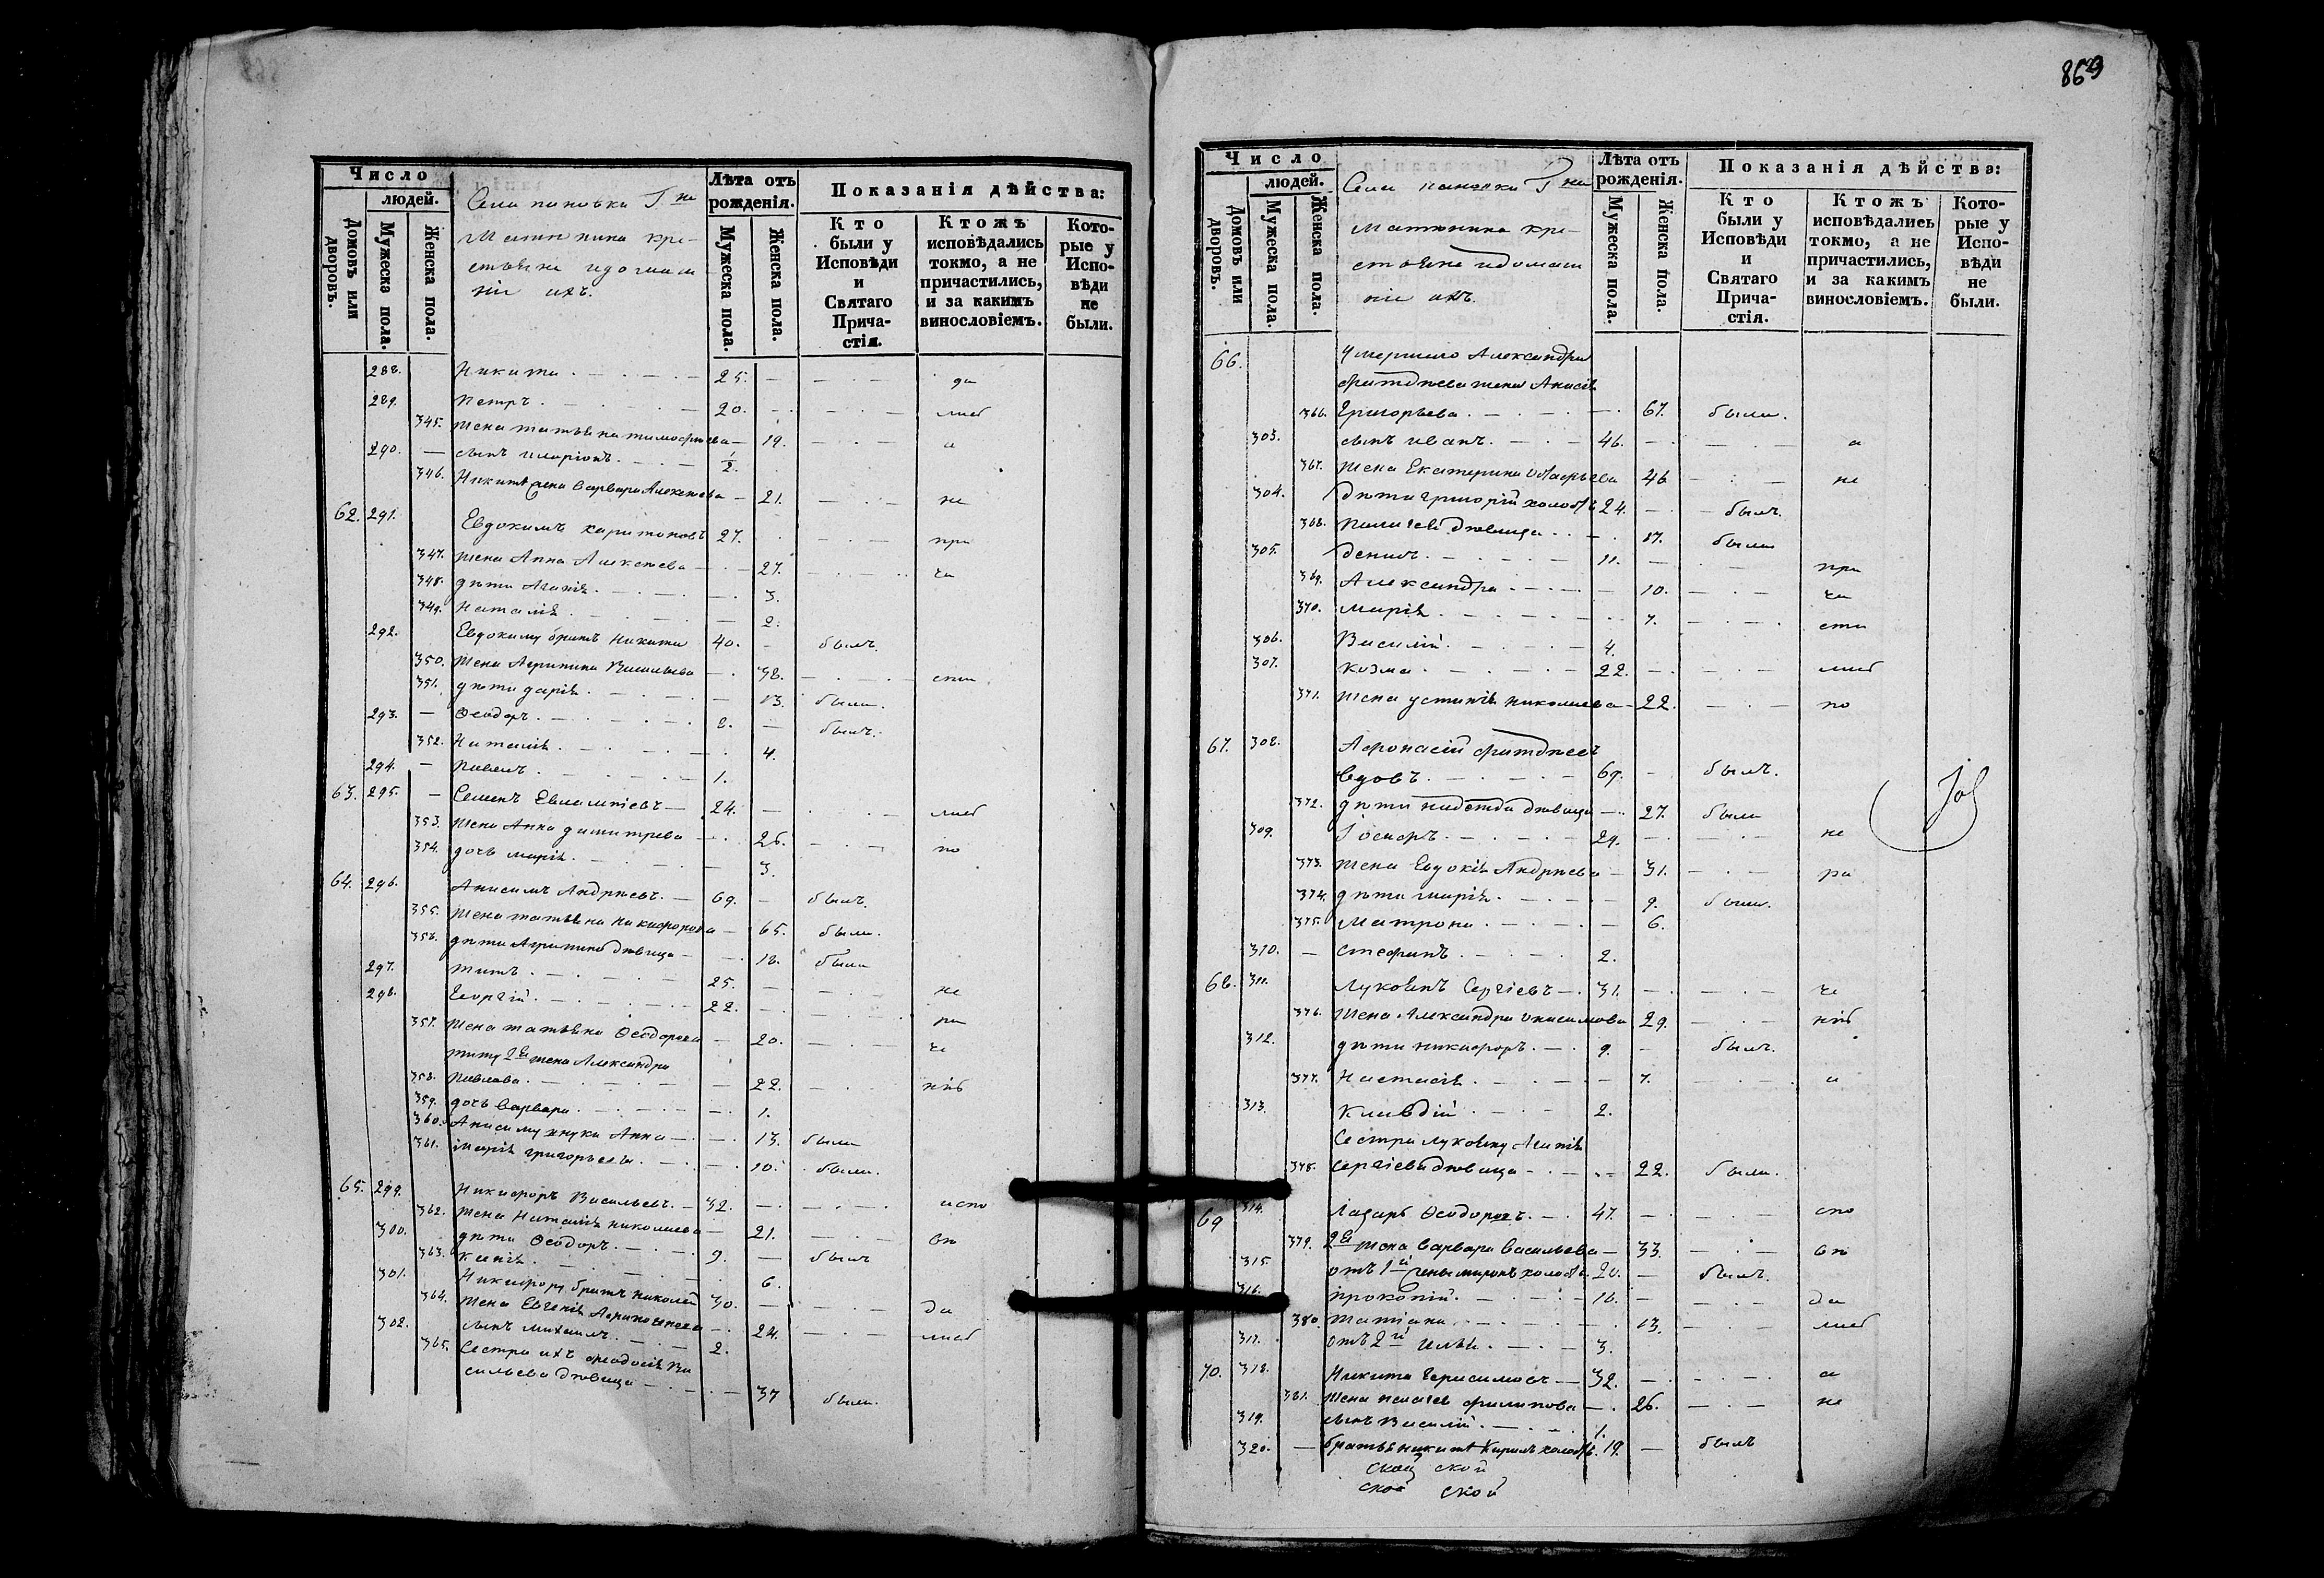 Число
людей.
Домовъ или дворовъ.
Мужеска пола.
Женска пола.
Села пановка Г на
Матюнина кре-
стьяне и домаш
ніи ихъ.
Лѣта отъ
рожденія.
Мужеска пола.
Женска пола.
Показанія дѣйства:
Кто
были у
Исповѣди
и
Святаго
Прича-
стія.
Ктожъ
исповѣдались
токмо, а не
причастились,
и за какимъ
винословіемъ.
Кото-
рые у
Испо-
вѣди
не
были.
288. Никита 25. да
289. Петръ 20.
345. Жена татьяна тимофѣева 19.
290. сынъ иларіонъ ½.
346. Никитѣ жена Варвара Алексѣева 21. не
62. 291. Евдокимъ харитоновъ 27. при
347. Жена Анна Алексѣева 27. ча
348. дѣти Агапія 3.
349. Наталія 2.
292. Евдокиму братъ Никита 40. былъ.
350. Жена Агрипина Васильева 38. сти
351. дѣти дарія 13. была.
293. Ѳеодоръ 8. былъ.
352. Наталія 4.
294. Павелъ 1.
63. 295. Семенъ Евлампіевъ 24.
353. Жена Анна димитрева 26. по
354. дочь марія 3.
64. 296. Анисимъ Андрѣевъ 69. былъ.
355. Жена татьяна никифорова 65. была.
356. дѣти Агрипина дѣвица 18. была
297. титъ 25. не
298. Георгій 22. ра
357. Жена татьяна Ѳеодорова 20. че
титу 2я жена Александра
358. Павлова 22. нію
359. дочь Варвара 1.
360. Анисиму внука Анна 13. была
361. марія григорьева 10. была.
65. 299. Никифоръ Васильевъ 32. испо
362. Жена Наталія николаева 21. вѣ
300. дѣти Ѳеодоръ 9. былъ
363. Ксенія 6.
301. Никифору братъ николай 30. да
364. Жена Евгенія Афиногенова 24.
302. сынъ михаилъ 2.
365. Сестра ихъ феодосія Ва
сильева дѣвица 37 была.
869
Число
людей.
Домовъ или дворовъ.
Мужеска пола.
Женска пола.
Села пановки Г на
Матюнина кре-
стьяне и домаш
ніи ихъ.
Лѣта отъ
рожденія.
Мужеска пола.
Женска пола.
Показанія дѣйства:
Кто
были у
Исповѣди
и
Святаго
Прича-
стія.
Ктожъ
исповѣдались
токмо, а не
причастились,
и за какимъ
винословіемъ.
Кото-
рые у
Испо-
вѣди
не
были.
66. Умершаго Александра
жена Анисія
366. Григорьева 67. была.
303. сынъ иванъ 46. а
367. Жена Екатерина 46 не
304. дѣти григорій холостъ 24. былъ.
368. Пелагея дѣвица 17. была
305. денисъ 11. при
369. Александра 10. ча
370. марія 7. сти
306. Василій 4.
307. козма 22.
371. Жена устинія николаева 22. по
67. 308. Афонасій
вдовъ 69. былъ.
372. дѣти надежда дѣвица 27. была
309. 29. не
373. Жена Евдокія Андрѣева 31. ра
374. дѣти марія 9. была.
375. Матрона 6.
310. стефанъ 2.
68. 311. Луковенъ Сергіевъ 31. че
376. Жена Александра онисимова 29. нію
312. дѣти никифоръ 9. былъ.
377. Настасія 7. а
313. Клавдій 2.
Сестра луковену Агапія
378. Сергіева дѣвица 22. была.
69 314. Лазарь Ѳеодоровъ 47. спо
379. 2я жена варвара васильева 33. вѣ
315. отъ 1й жены миронъ холостъ 20. былъ.
316. прокопій 16. да
380. татіана 13.
317. отъ 2й илья 3.
70. 318. Никита Герасимовъ 32. а
381. Жена пелагея филипова 26. не
319. сынъ Василій 1.
320. братья никитѣ кирилъ холостъ 19. былъ
ской ской
ской ской